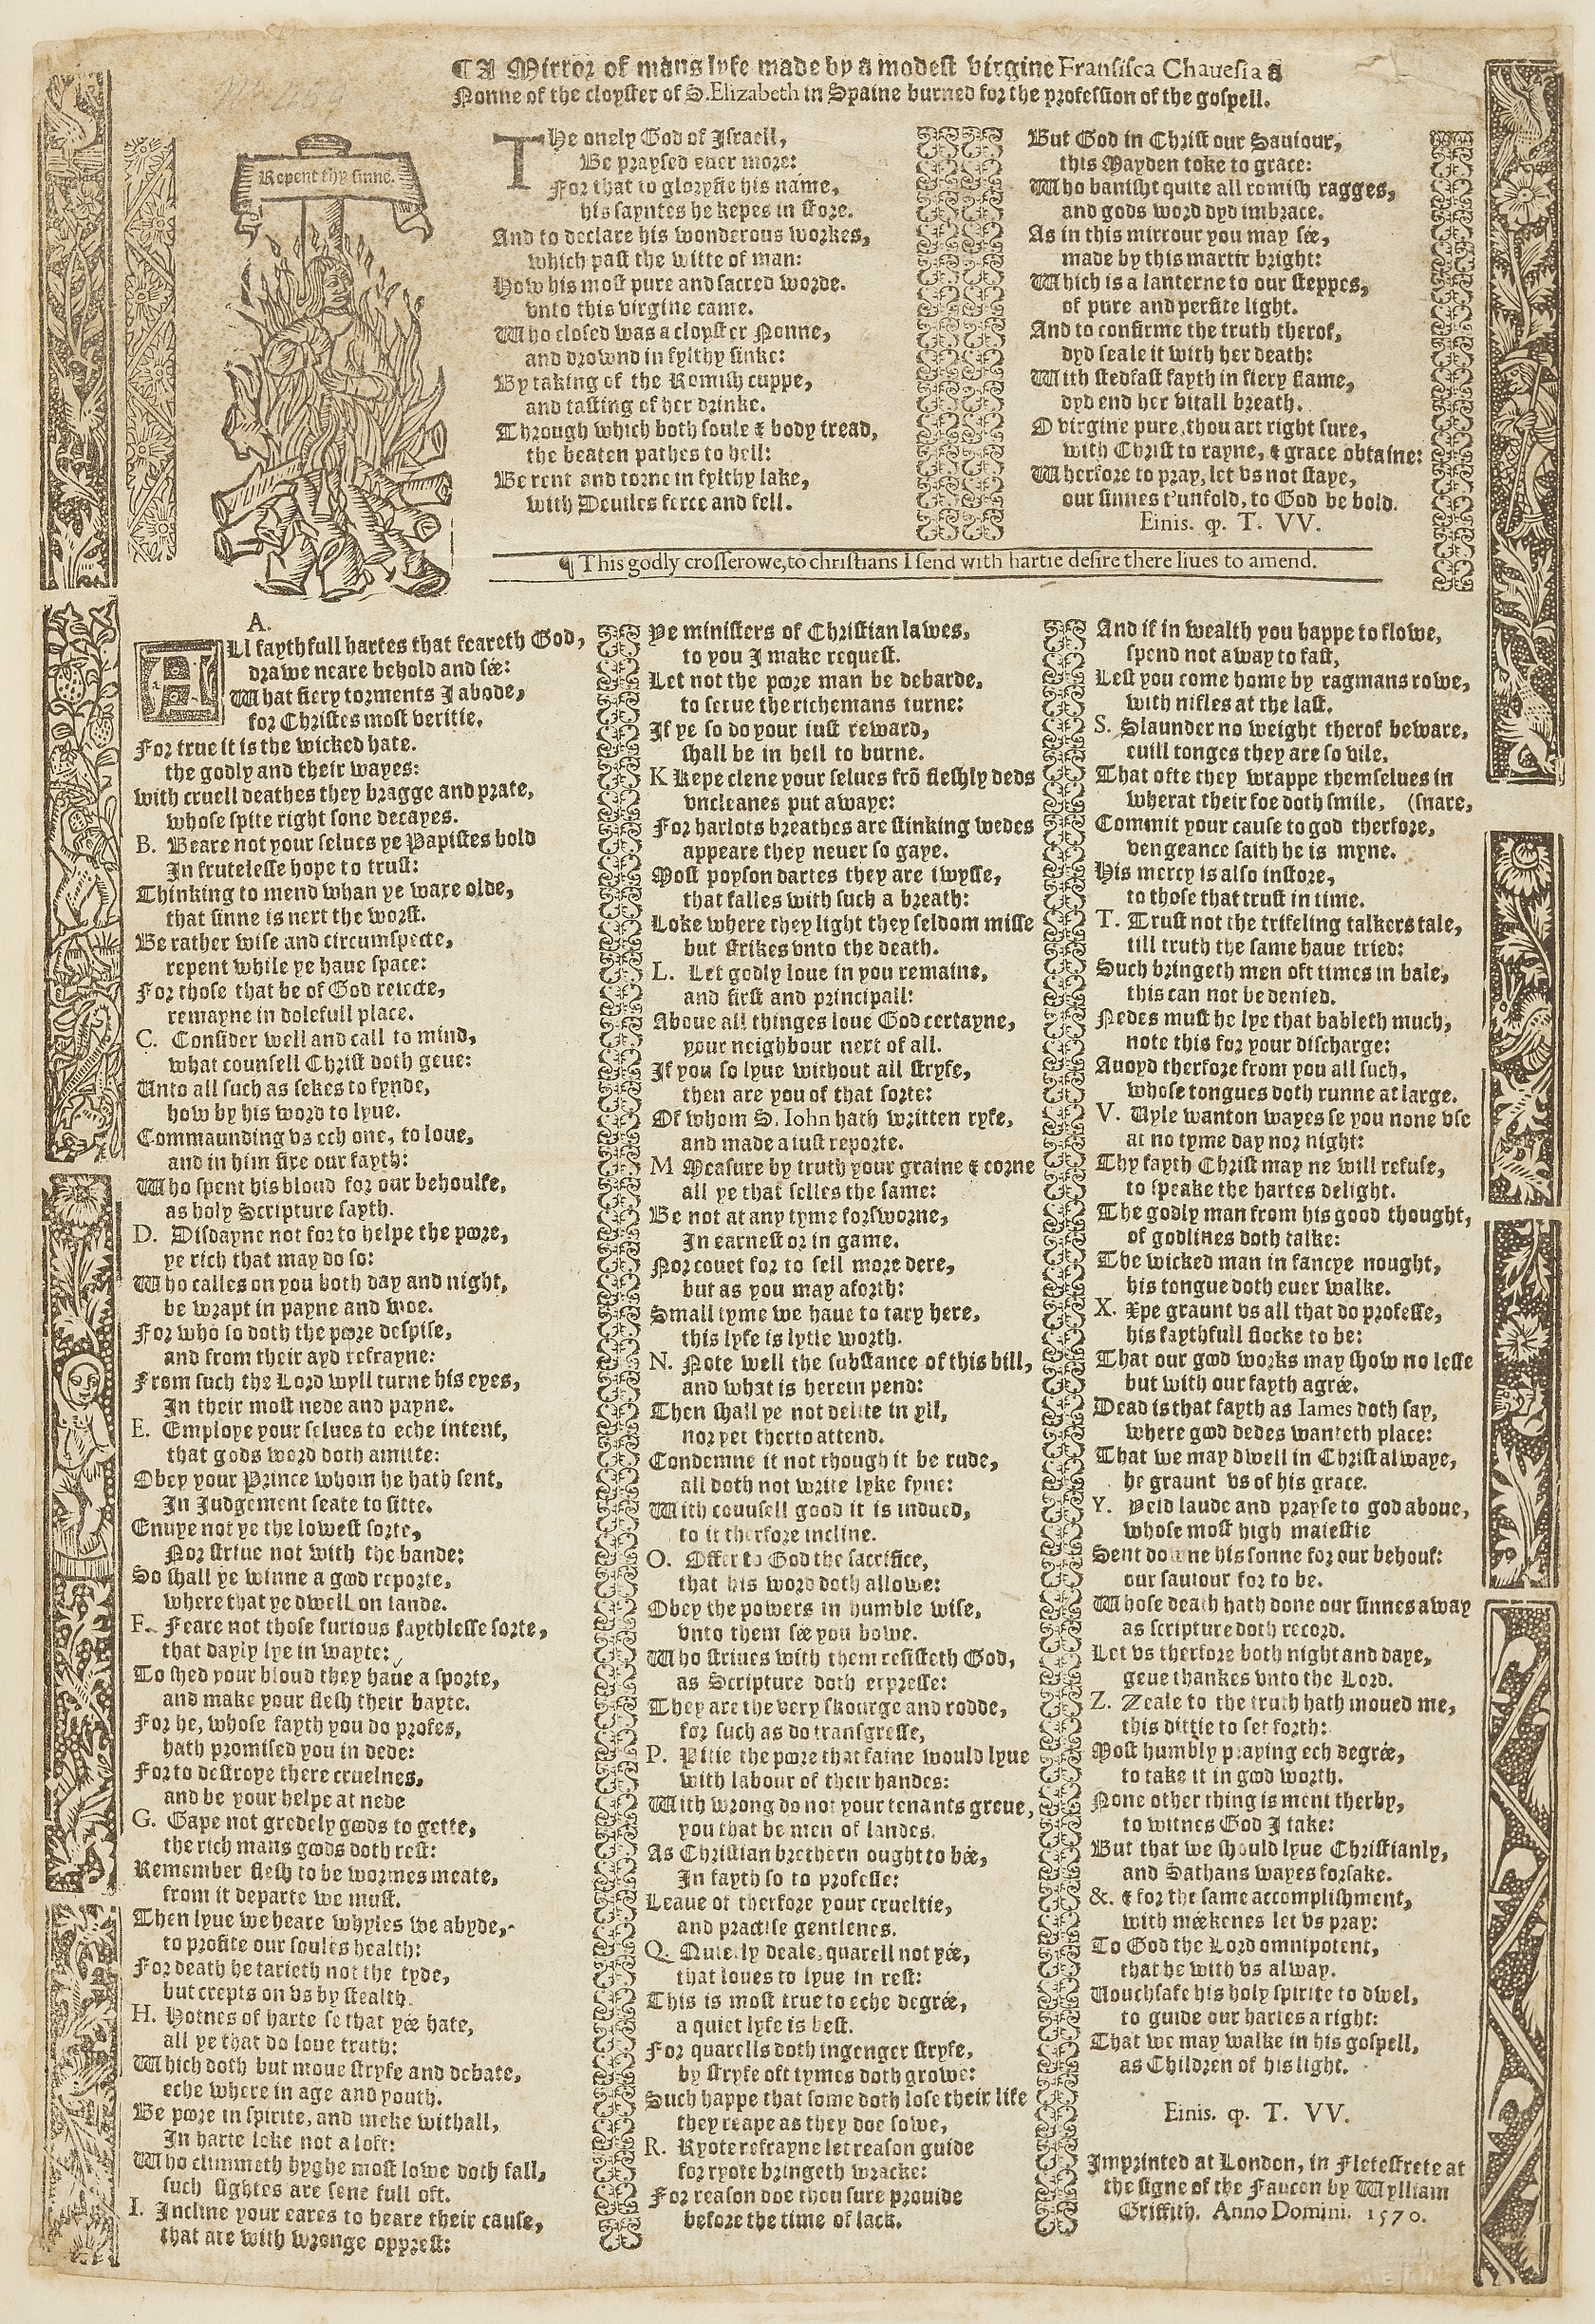 ¶ A Mirror of mans lyfe made by a modest virgine Fransisca Chauesia a
Nonne of the cloyster of S. Elizabeth in Spaine burned for the profession of the gospell.
Repent thy sinne.
THe onely God of Israell,
Be praysed euer more:
For that to gloryfie his name,
his sayntes he kepes in store.
And to declare his wonderous workes,
which past the witte of man:
How his most pure and sacred worde.
vnto this virgine came.
Who closed was a cloyster Nonne,
and drownd in fylthy sinke:
By taking of the Romish cuppe,
and tasting of her drinke.
Through which both soule & body tread,
the beaten pathes to hell:
Be rent and torne in fylthy lake,
with Deuiles ferce and fell.
But God in Christ our Sauiour,
this Mayden toke to grace:
Who banisht quite all romish ragges,
and gods word dyd imbrace.
As in this mirrour you may sée,
made by this martir bright:
Which is a lanterne to our steppes,
of pure and perfite light.
And to confirme the truth therof,
dyd seale it with her death:
With stedfast fayth in fiery flame,
dyd end her vitall breath.
O virgine pure, thou art right sure,
with Christ to rayne, & grace obtaine:
Wherfore to pray, let vs not staye,
our sinnes t'unfold, to God be bold.
Einis. qp. T. VV.
¶ This godly crosserowe, to christians I send with hartie desire there liues to amend.
A.
ALl faythfull hartes that feareth God,
drawe neare behold and sée:
What fiery torments I abode,
for Christes most veritie.
For true it is the wicked hate.
the godly and their wayes:
with cruell deathes they bragge and prate,
whose spite right sone decayes.
B. Beare not your selues ye Papistes bold
In frutelesse hope to trust:
Thinking to mend whan ye ware olde,
that sinne is next the worst.
Be rather wise and circumspecte,
repent while ye haue space:
For those that be of God reiecte,
remayne in dolefull place.
C. Consider well and call to mind,
what counsell Christ doth geue:
Unto all such as sekes to fynde,
how by his word to lyue.
Commaunding vs ech one, to loue,
and in him fixe our fayth:
Who spent his bloud for our behoulfe,
as holy Scripture sayth.
D. Disdayne not for to helpe the poore,
ye rich that may do so:
Who calles on you both day and night,
be wrapt in payne and woe.
For who so doth the poore despise,
and from their ayd refrayne:
From such the Lord wyll turne his eyes,
In their most nede and payne.
E. Employe your selues to eche intent,
that gods word doth amitte:
Obey your Prince whom he hath sent,
In Judgement seate to sitte.
Enuye not ye the lowest sorte,
Nor striue not with the bande:
So shall ye winne a good reporte,
where that ye dwell on lande.
F. Feare not those furious faythlesse sorte,
that dayly lye in wayte:
To shed your bloud they haue a sporte,
and make your flesh their bayte.
For he, whose fayth you do profes,
hath promised you in dede:
For to destroye there cruelnes,
and be your helpe at nede
G. Gape not gredely goods to gette,
the rich mans goods doth rest:
Remember flesh to be wormes meate,
from it departe we must.
Then lyue we heare whyles we abyde,
to profite our soules health:
For death he tarieth not the tyde,
but crepts on vs by stealth.
H. Hotnes of harte se that yée hate,
all ye that do loue truth:
Which doth but moue stryfe and debate,
eche where in age and youth.
Be poore in spirite, and meke withall,
In harte loke not a loft:
Who climmeth hyghe most lowe doth fall,
such sightes are sene full oft.
I. Incline your eares to heare their cause,
that are with wronge opprest:
Ye ministers of Christian lawes,
to you I make request.
Let not the poore man be debarde,
to serue the richemans turne:
If ye so do your iust reward,
shall be in hell to burne.
K Kepe clene your selues frõ fleshly deds
vncleanes put awaye:
For harlots breathes are stinking wedes
appeare they neuer so gaye.
Most poyson dartes they are iwysse,
that falles with such a breath:
Loke where they light they seldom misse
but strikes vnto the death.
L. Let godly loue in you remaine,
and first and principall:
Aboue all thinges loue God certayne,
your neighbour next of all.
If you so lyue without all stryfe,
then are you of that sorte:
Of whom S. Iohn hath written ryfe,
and made a iust reporte.
M Measure by truth your graine & corne
all ye that selles the same:
Be not at any tyme forsworne,
In earnest or in game.
Nor couet for to sell more dere,
but as you may aforth:
Small tyme we haue to tary here,
this lyfe is lytle worth.
N. Note well the substance of this bill,
and what is herein pend:
Then shall ye not delite in yll,
nor yet therto attend.
Condemne it not though it be rude,
all doth not write lyke fyne:
With couusell good it is indued,
to it therfore incline.
O. Offer to God the sacrifice,
that his word doth allowe:
Obey the powers in humble wise,
vnto them sée you bowe.
Who striues with them resisteth God,
as Scripture doth expresse:
They are the very skourge and rodde,
for such as do transgresse,
P. Pitie the poore that faine would lyue
with labour of their handes:
With wrong do not your tenants greue,
you that be men of landes.
As Christian brethern ought to bée,
In fayth so to professe:
Leaue of therfore your crueltie,
and practise gentlenes.
Q. Quietly deale, quarell not yée,
that loues to lyue in rest:
This is most true to eche degrée,
a quiet lyfe is best.
For quarells doth ingenger stryfe,
by stryfe oft tymes doth growe:
Such happe that some doth lose their life
they reape as they doe sowe,
R. Ryote refrayne let reason guide
for ryote bringeth wracke:
For reason doe thou sure prouide
before the time of lack.
And if in wealth you happe to flowe,
spend not away to fast,
Lest you come home by ragmans rowe,
with nifles at the last.
S. Slaunder no weight therof beware,
euill tonges they are so vile.
That ofte they wrappe themselues in
wherat their foe doth smile, (snare,
Commit your cause to god therfore,
vengeance saith he is myne.
His mercy is also instore,
to those that trust in time.
T. Trust not the trifeling talkers tale,
till truth the same haue tried:
Such bringeth men oft times in bale,
this can not be denied.
Nedes must he lye that bableth much,
note this for your discharge:
Auoyd therfore from you all such,
whose tongues doth runne at large.
V. Uyle wanton wayes se you none vse
at no tyme day nor night:
Thy fayth Christ may ne will refuse,
to speake the hartes delight.
The godly man from his good thought,
of godlines doth talke:
The wicked man in fancye nought,
his tongue doth euer walke.
X. Xpe graunt vs all that do professe,
his faythfull flocke to be:
That our good works may show no lesse
but with our fayth agrée.
Dead is that fayth as Iames doth say,
where good dedes wanteth place:
That we may dwell in Christ alwaye,
he graunt vs of his grace.
Y. Yeld laude and prayse to god aboue,
whose most high maiestie
Sent downe his sonne for our behouf:
our sauiour for to be.
Whose death hath done our sinnes away
as scripture doth record.
Let vs therfore both night and daye,
geue thankes vnto the Lord.
Z. Zeale to the truth hath moued me,
this dittie to set forth:
Most humbly praying ech degrée,
to take it in good worth.
None other thing is ment therby,
to witnes God I take:
But that we should lyue Christianly,
and Sathans wayes forsake.
&. & for the same accomplishment,
with méekenes let vs pray:
To God the Lord omnipotent,
that he with vs alway.
Uouchsafe his holy spirite to dwel,
to guide our hartes a right:
That we may walke in his gospell,
as Children of his light.
Einis. qp. T. VV.
Imprinted at London, in Fletestrete at
the signe of the Faucon by Wylliam
Griffith. Anno Domini. 1570.